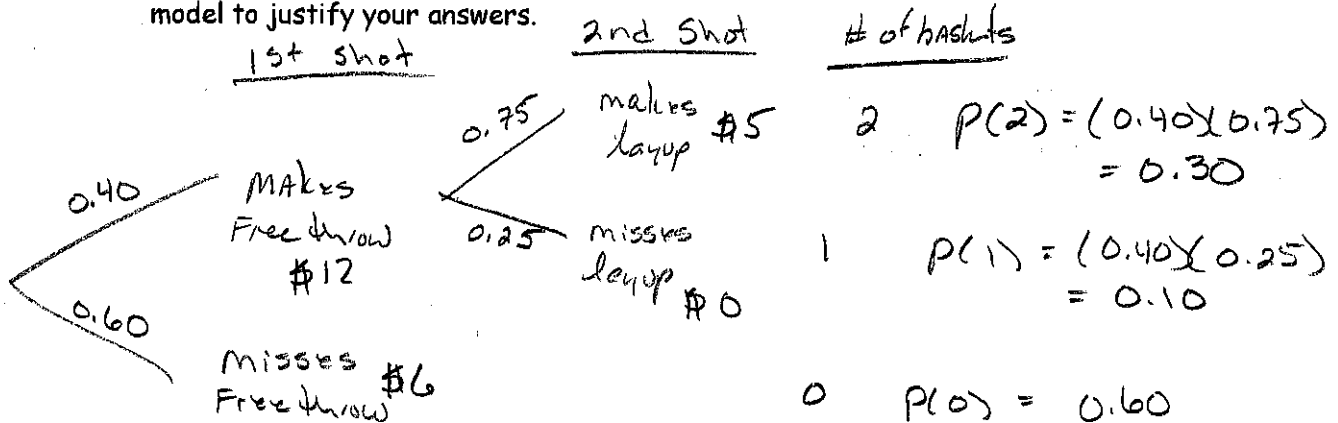 model to justify your answers.
1st shot
2nd Shot
# of baskets
0.40
MAkes
Free throw
$12
0.60
Misses
Free throw $6
0.75
makes
layup $5
0.25
misses
layup $0
2 P(2) = (0.40)(0.75)
= 0.30
1 P(1) = (0.40)(0.25)
= 0.10
0 P(0) = 0.60